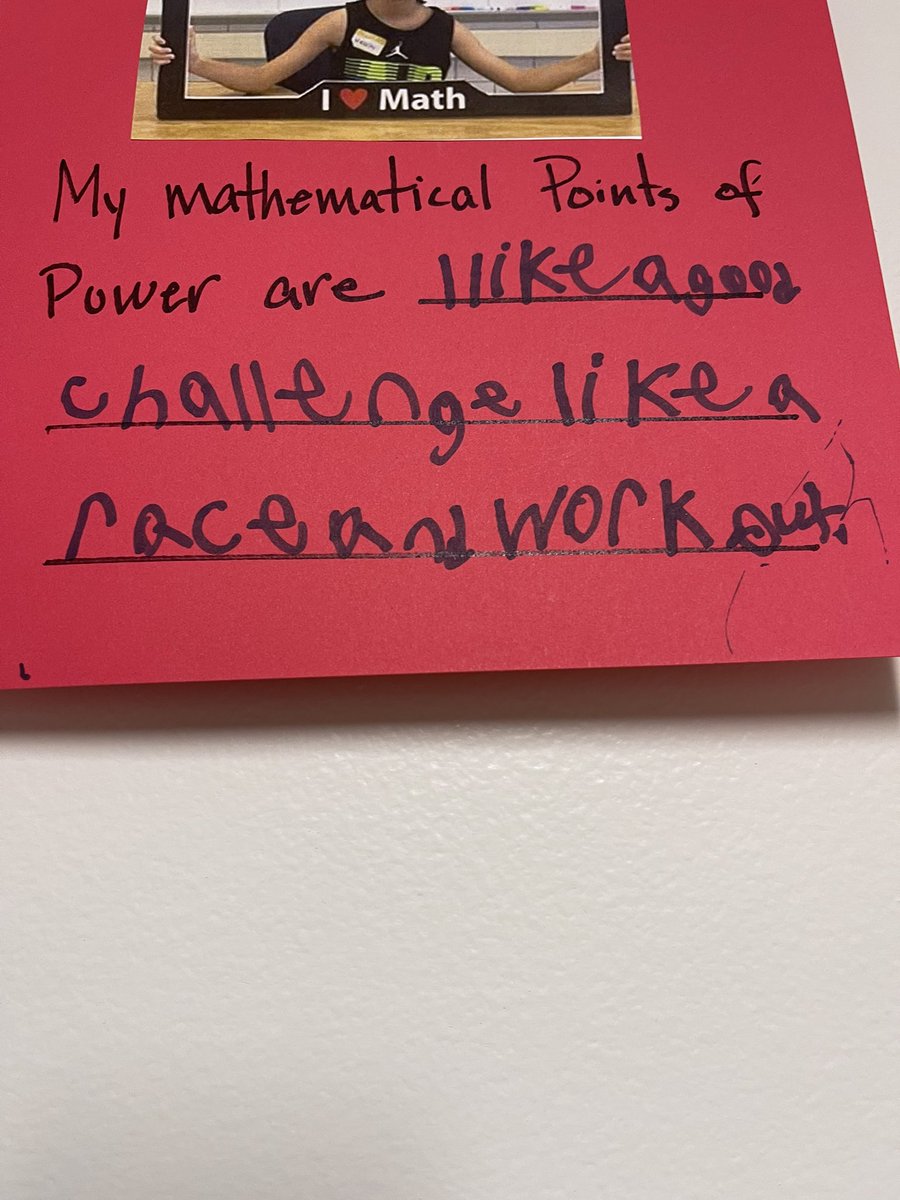 I ❤ Math
My mathematical Points of
Power are I like a good
challenge like a
race and work out.